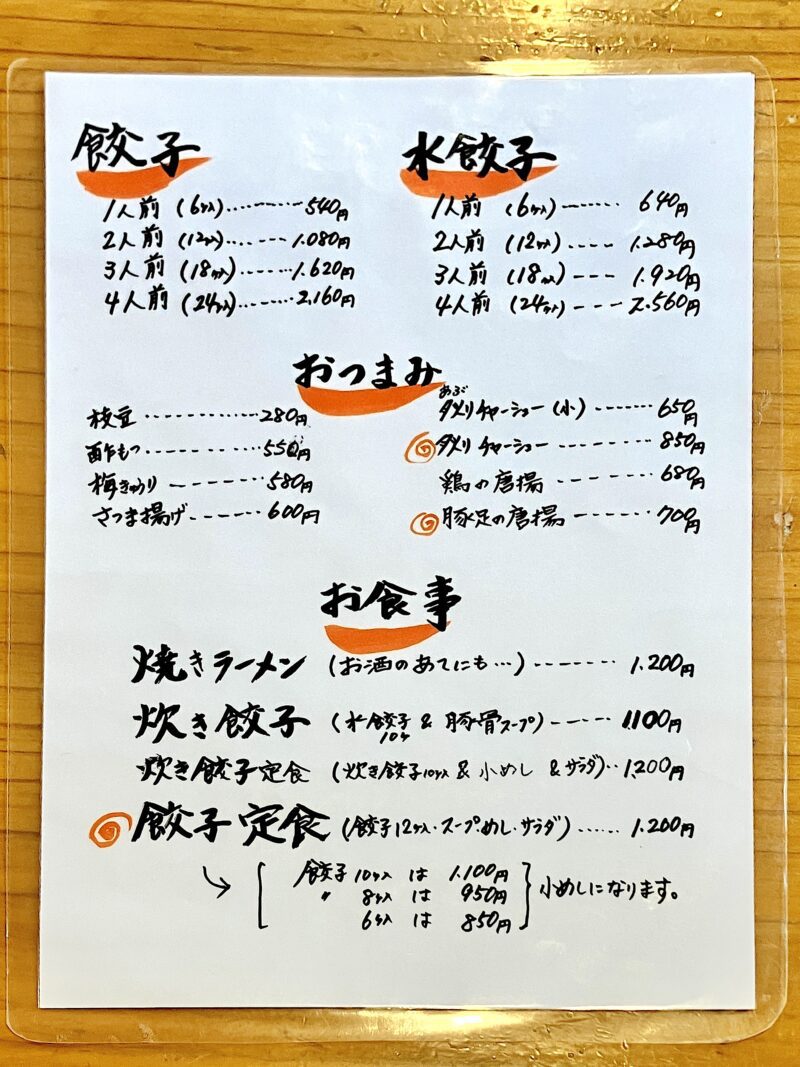 餃子
1人前 (6ケ入)........540円
2人前 (12ケ入)........1.080円
3人前 (18ケ入)........1.620円
4人前 (24ケ入)........2.160円
水餃子
1人前 (6ケ入)------640円
2人前 (12ケ入)....1.280円
3人前 (18ケ入)---1.920円
4人前 (24ケ入)---2.560円
おつまみ
枝豆............280円
酢もつ............550円
梅きゅうり--------580円
さつま揚げ--------600円
あぶ
炙りチャーシュー(小)-------650円
炙りチャーシュー--------850円
鶏の唐揚--------680円
豚足の唐揚------700円
お食事
焼きラーメン (お酒のあてにも…)-------1.200円
炊き餃子 (水餃子10ケ & 豚骨スープ)-----1.100円
炊き餃子定食 (炊き餃子10ケ入 & 小めし & サラダ)..1.200円
餃子定食 (餃子12ケ入・スープ・めし・サラダ)......1.200円
餃子10ケ入は 1.100円
〃 8ケ入は 950円
6ケ入は 850円
小めしになります。